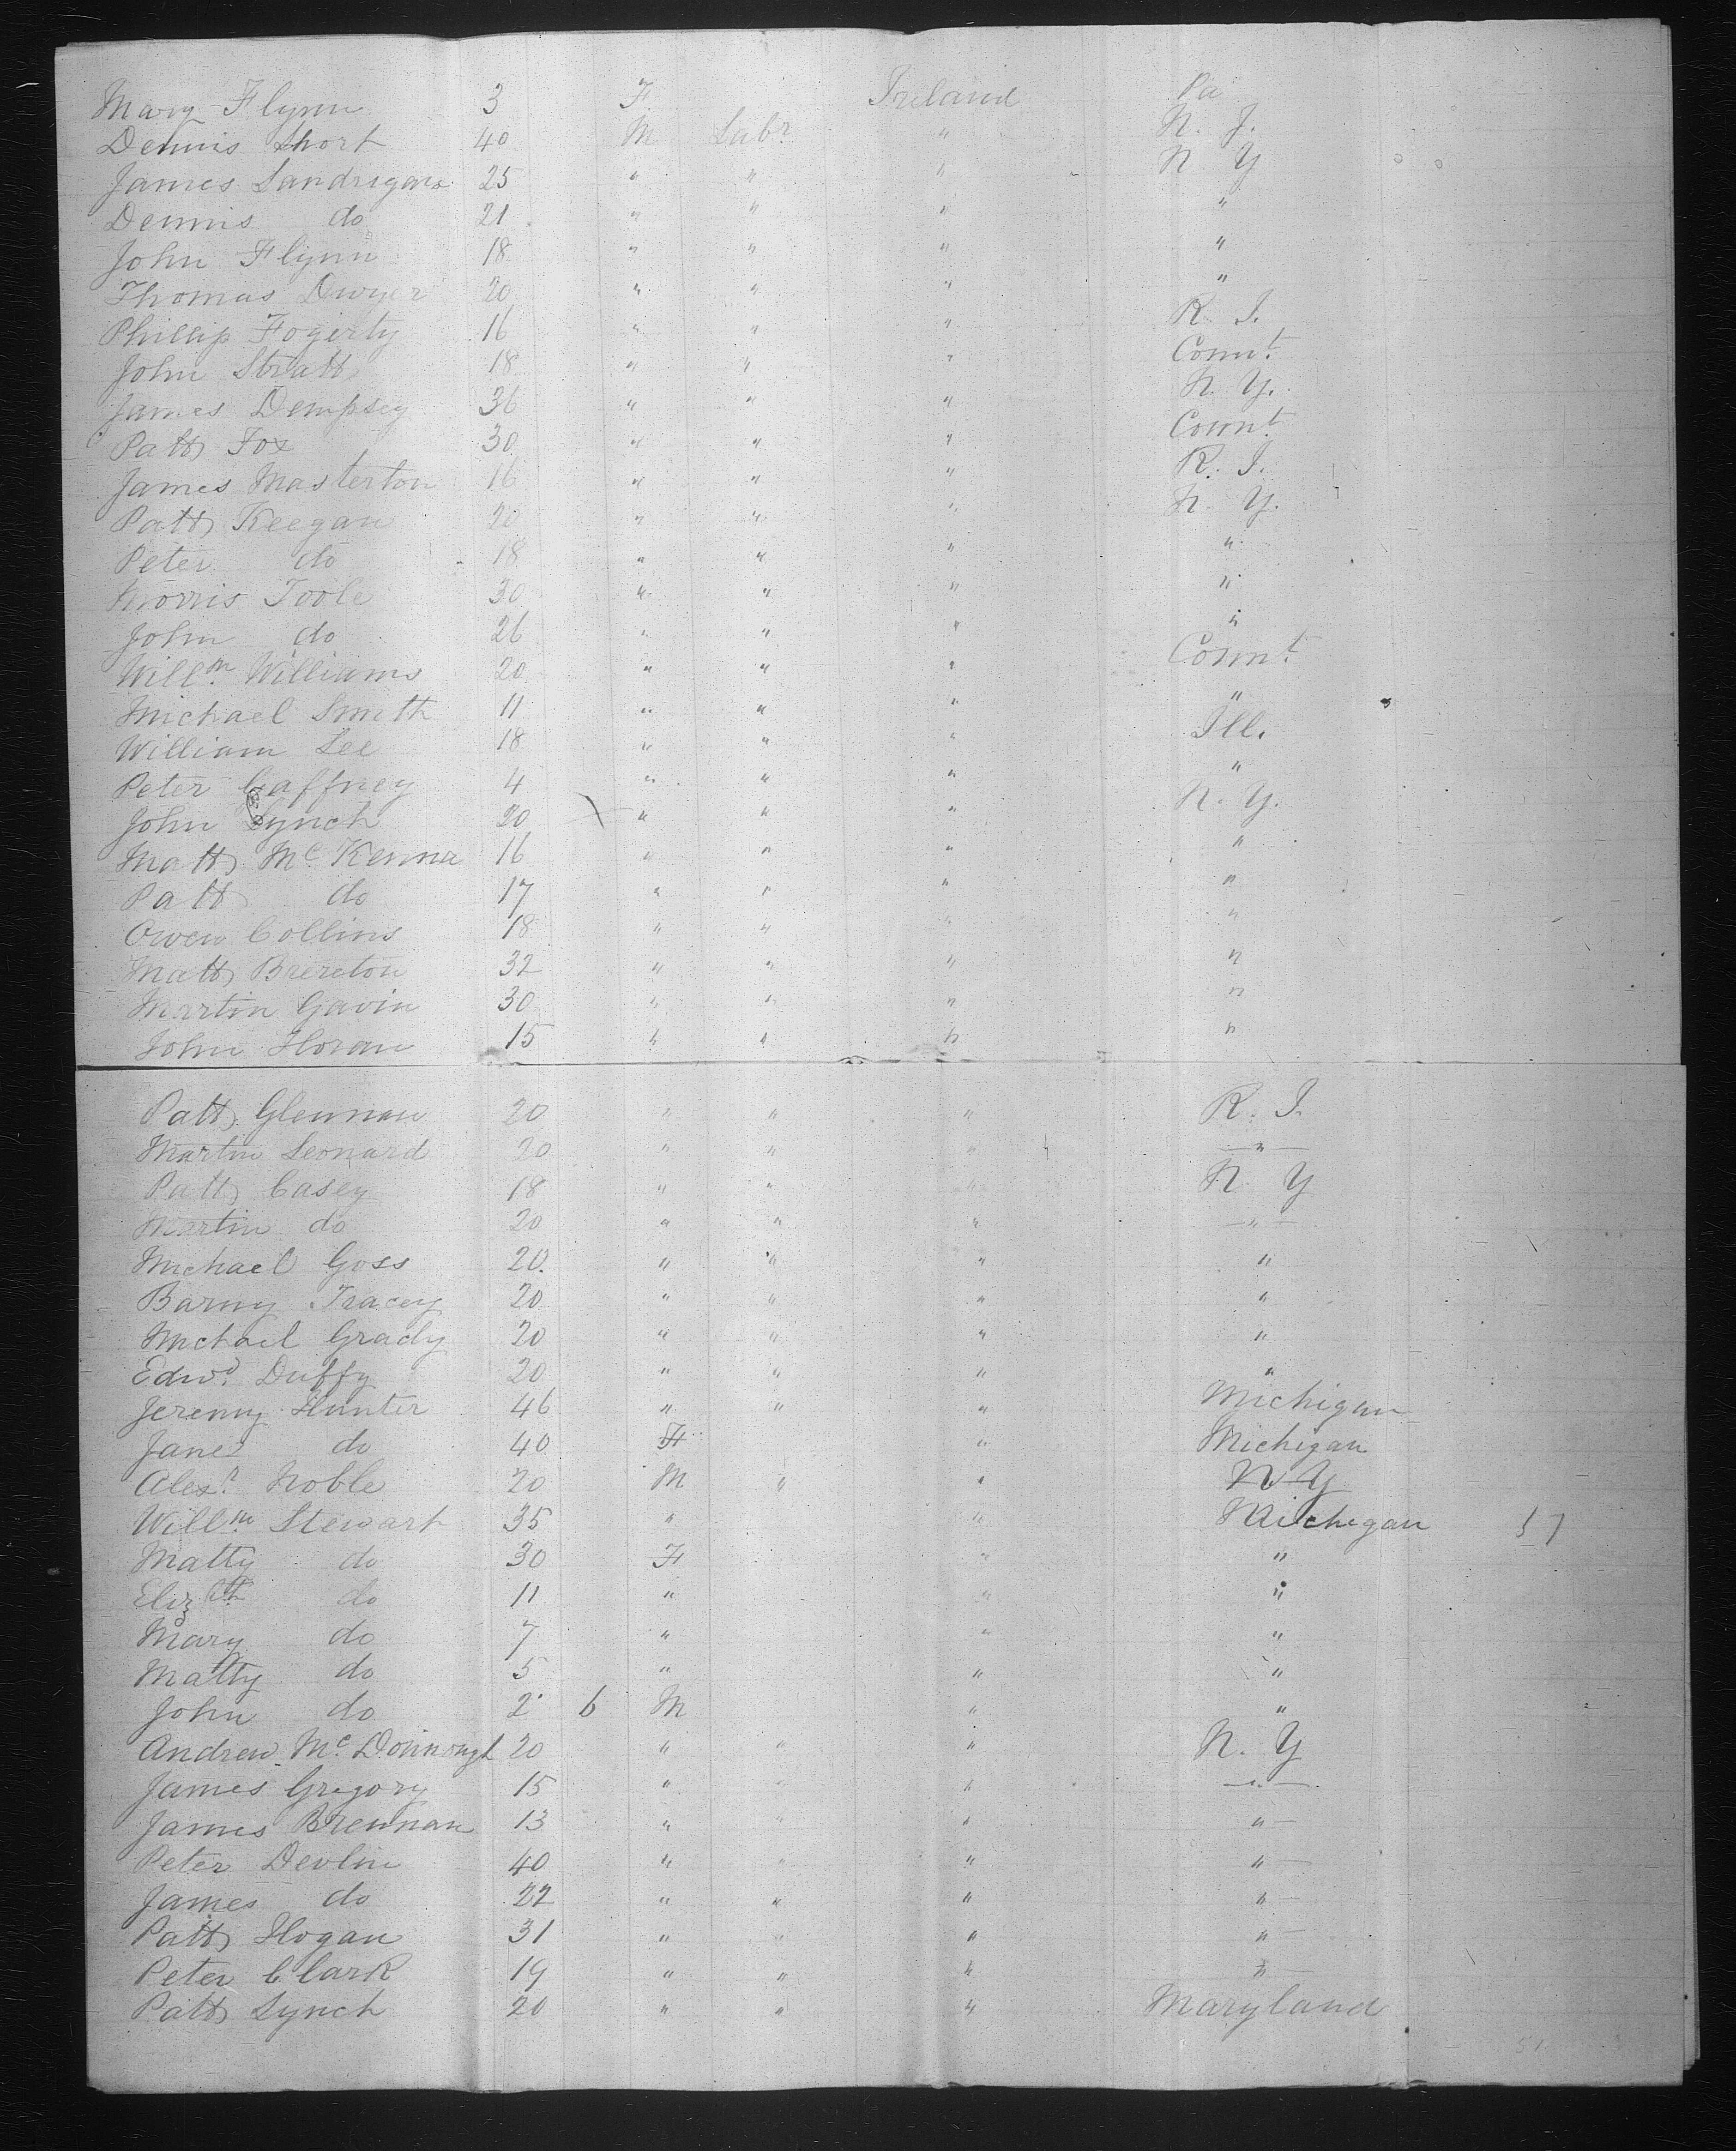 Mary Flynn 3 F Ireland Pa
Dennis Short 40 M Labr " N. J.
James Landrigan 25 " " " N Y
Dennis do 21 " " " "
John Flynn 18 " " " "
Thomas Dwyer 20 " " " "
Phillip Fogerty 16 " " " R. I.
John Stratt 18 " " " Connt.
James Dempsey 36 " " " N. Y.
Patt Fox 30 " " " Connt
James Masterton 16 " " " R. I.
Patt Keegan 20 " " " N. Y.
Peter do 18 " " " "
Morris Toole 30 " " " "
John do 26 " " " "
Willm Williams 20 " " " Connt.
Michael Smith 11 " " " "
William Lee 18 " " " Ill.
Peter Gaffney 4 " " " "
John Lynch 20 " " " N. Y.
Matt McKenna 16 " " " "
Patt do 17 " " " "
Owen Collins 18 " " " "
Matt Brereton 32 " " " "
Martin Gavin 30 " " " "
John Horan 15 " " " "
Patt Glennan 20 " " " R. I.
Martin Leonard 20 " " " "
Patt Casey 18 " " " N. Y
Martin do 20 " " " "
Michael Goss 20. " " " "
Barny Tracey 20 " " " "
Michael Grady 20 " " " "
Edwd. Duffy 20 " " " "
Jeremy Hunter 46 " " " Michigan
Jane do 40 F " Michigan
Alexr. Noble 20 M " " N Y
Willm Stewart 35 " " Michigan
Matty do 30 F " "
Elizbth do 11 " " "
Mary do 7 " " "
Matty do 5 " " "
John do 2 6 M " "
Andrew Mc.Donnough 20 " " " N. Y
James Gregory 15 " " " "
James Brennan 13 " " " "
Peter Devlin 40 " " " "
James do 22 " " " "
Patt Hogan 31 " " " "
Peter Clark 19 " " " "
Patt Lynch 20 " " " Maryland